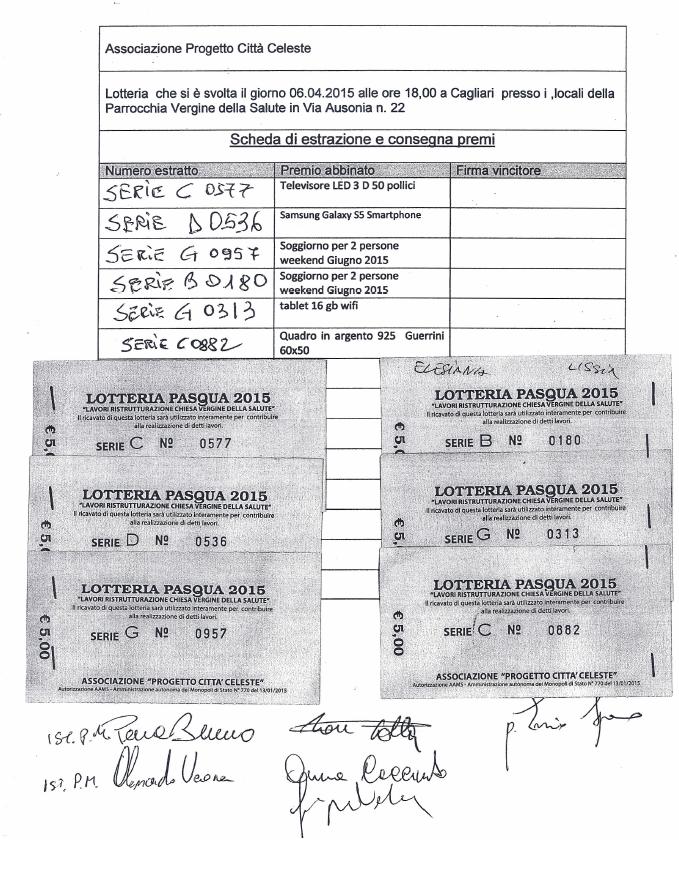 Associazione Progetto Città Celeste
Lotteria che si è svolta il giorno 06.04.2015 alle ore 18,00 a Cagliari presso i ,locali della
Parrocchia Vergine della Salute in Via Ausonia n. 22
Scheda di estrazione e consegna premi
Numero estratto Premio abbinato Firma vincitore
SERIE C 0577 Televisore LED 3 D 50 pollici
SERIE D 0536 Samsung Galaxy S5 Smartphone
SERIE G 0957 Soggiorno per 2 persone
weekend Giugno 2015
SERIE B 0180 Soggiorno per 2 persone
weekend Giugno 2015
SERIE G 0313 tablet 16 gb wifi
SERIE C0882 Quadro in argento 925 Guerrini
60x50
LOTTERIA PASQUA 2015
"LAVORI RISTRUTTURAZIONE CHIESA VERGINE DELLA SALUTE"
Il ricavato di questa lotteria sarà utilizzato interamente per contribuire
alla realizzazione di detti lavori.
€ 5,
SERIE C Nº 0577
LOTTERIA PASQUA 2015
"LAVORI RISTRUTTURAZIONE CHIESA VERGINE DELLA SALUTE"
Il ricavato di questa lotteria sarà utilizzato interamente per contribuire
alla realizzazione di detti lavori.
€ 5,
SERIE D Nº 0536
LOTTERIA PASQUA 2015
"LAVORI RISTRUTTURAZIONE CHIESA VERGINE DELLA SALUTE"
Il ricavato di questa lotteria sarà utilizzato interamente per contribuire
alla realizzazione di detti lavori.
€ 5,00
SERIE G Nº 0957
ASSOCIAZIONE "PROGETTO CITTA' CELESTE"
Autorizzazione AAMS - Amministrazione autonoma dei Monopoli di Stato N° 770 del 13/01/2015
LOTTERIA PASQUA 2015
"LAVORI RISTRUTTURAZIONE CHIESA VERGINE DELLA SALUTE"
Il ricavato di questa lotteria sarà utilizzato interamente per contribuire
alla realizzazione di detti lavori.
€ 5,
SERIE B Nº 0180
LOTTERIA PASQUA 2015
"LAVORI RISTRUTTURAZIONE CHIESA VERGINE DELLA SALUTE"
Il ricavato di questa lotteria sarà utilizzato interamente per contribuire
alla realizzazione di detti lavori.
€ 5,
SERIE G Nº 0313
LOTTERIA PASQUA 2015
"LAVORI RISTRUTTURAZIONE CHIESA VERGINE DELLA SALUTE"
Il ricavato di questa lotteria sarà utilizzato interamente per contribuire
alla realizzazione di detti lavori.
€ 5,00
SERIE C Nº 0882
ASSOCIAZIONE "PROGETTO CITTA' CELESTE"
Autorizzazione AAMS - Amministrazione autonoma dei Monopoli di Stato N° 770 del 13/01/2015
Isp. P.M.
Isp. P.M.